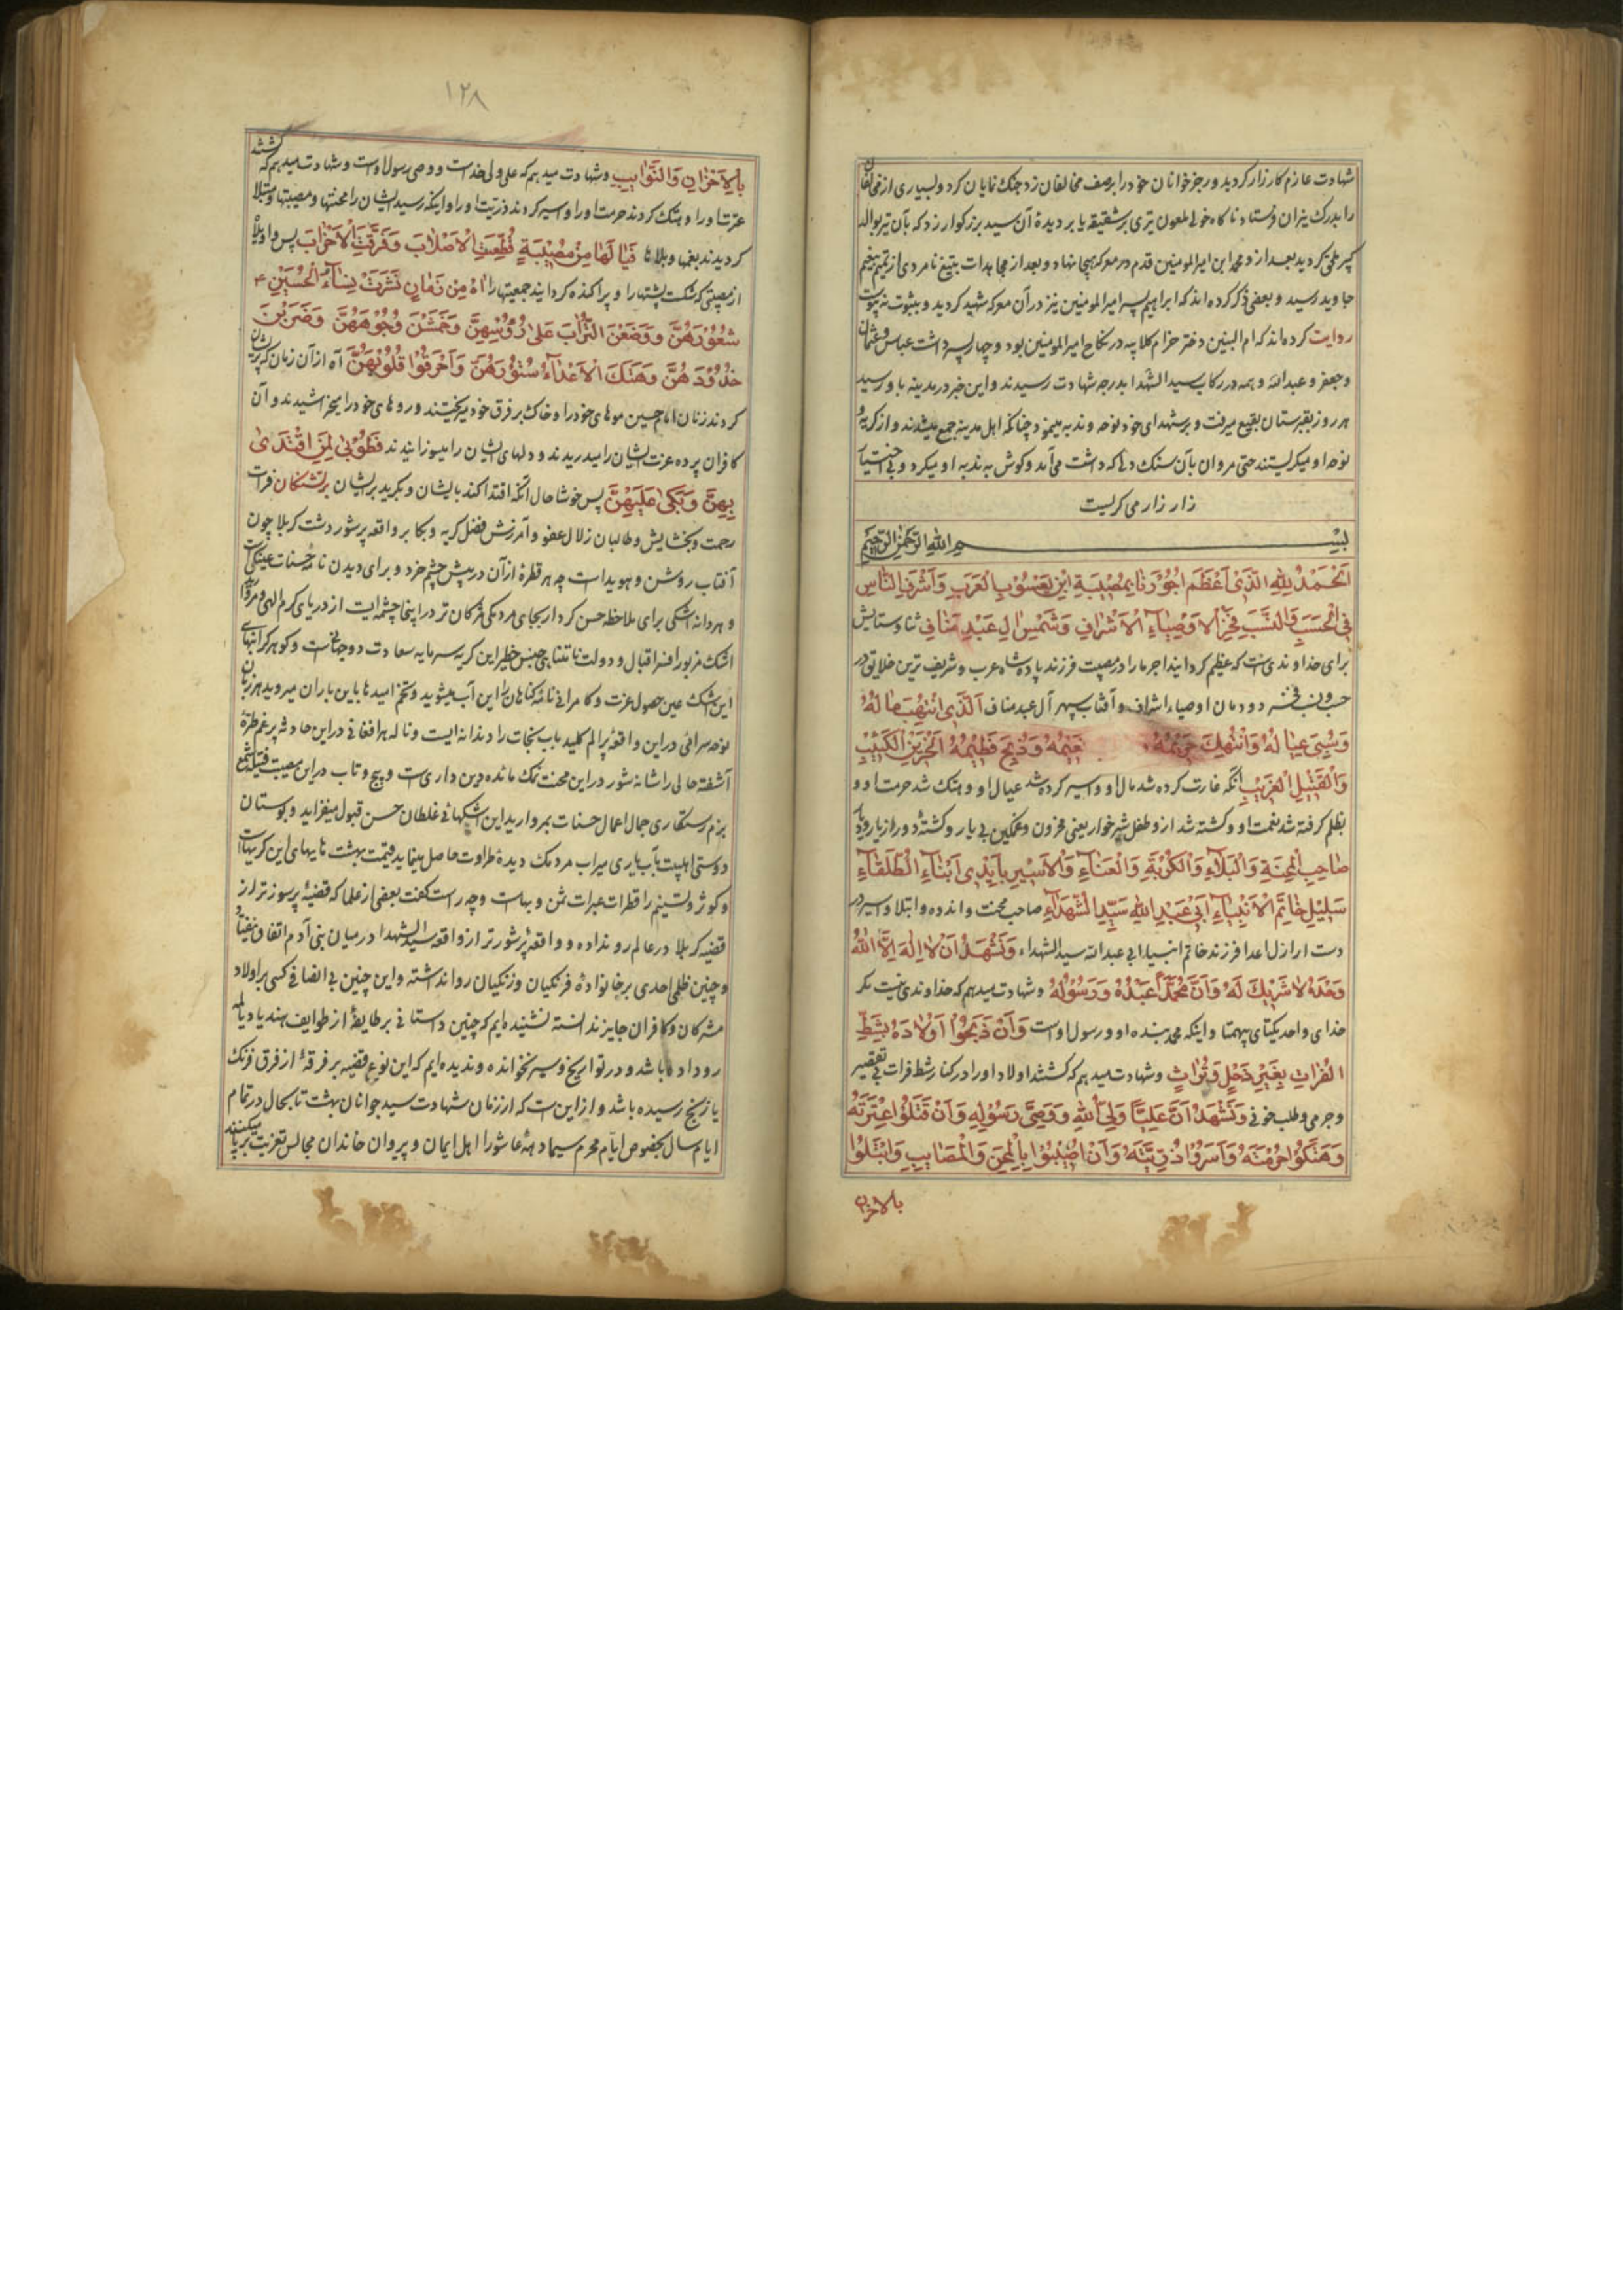 شهادت عازم کارزار کردید و رجز خوانان خود را بر صف مخالفان زد جنک نمایان کرد و بسیاری از مخالفان
را بدرک نیران فرستاد ناکاه خولی ملعون تیری بر شقیقه یا بر دیدهٔ آن سید بزرکوار زد که بآن تیر
کردید بعد از و محمد ابن امیرالمومنین قدم در معرکه هیجا نهاد و بعد از مجاهدات بتیغ نامردی از تمیم بنعیم
جاوید رسید و بعضی ذکر کرده اند که ابراهیم پسر امیرالمومنین نیز در آن معرکه شهید کردید و بثبوت نه پیوست
روایت کرده اند که ام البنین دختر حزام کلابیه در نکاح امیرالمومنین بود و چهار پسر داشت عباس و عثمان
و جعفر و عبدالله و همه در رکاب سید الشهدا بدرجه شهادت رسیدند و این خبر در مدینه باو رسید
هر روز بقبرستان بقیع میرفت و بر شهدای خود نوحه و ندبه مینمود چنانکه اهل مدینه جمع میشدند و از کریه و
نوحه او میکریستند حتی مروان بآن سنک دلی که داشت می آمد و کوش به ندبه او میکرد و بی اختیار
زار زار می کریست
بسم الله الرحمن الرحیم
اَلْحَمْدُ لِلّٰهِ الَّذِیْ اَعْظَمَ اُجُوْرَنَا بِمُصِیْبَةِ ابْنِ یَعْسُوْبِ الْعَرَبِ وَاَشْرَفِ النَّاسِ
فِی الْحَسَبِ وَالنَّسَبِ فَخْرِ الْاَوْصِیَاءِ الْاَشْرَافِ وَشَمْسِ اٰلِ عَبْدِ مَنَافٍ ثنا و ستایش
برای خداوندی است که عظیم کردانید اجر ما را در مصیبت فرزند پادشاه عرب و شریف ترین خلایق در
حسب و نسب فخر دودمان اوصیاء اشراف و آفتاب سپهر آل عبد مناف اَلَّذِیْ انْتُهِبَ مَالُهُ
وَسُبِیَ عِیَالُهُ وَانْتُهِكَ حَرِیْمُهُ وَذُبِحَ فَطِیْمُهُ الْحَزِیْنِ الْکَئِیْبِ
وَالْقَتِیْلِ الْغَرِیْبِ آنکه غارت کرده شد مال او و اسیر کرده شد عیال او و هتک شد حرمت او و
بظلم کرفته شد نعمت او و کشته شد ازو طفل شیر خوار یعنی محزون و غمکین بی یار و کشتهٔ دور از یار و دیار
صَاحِبِ الْمِحْنَةِ وَالْبَلَاءِ وَالْکُرْبَةِ وَالْعَنَاءِ وَالْاَسِیْرِ بِاَیْدِیْ اَبْنَاءِ الطُّلَقَاءِ
سَلِیْلِ خَاتَمِ الْاَنْبِیَاءِ اَبِیْ عَبْدِ اللهِ سَیِّدِ الشُّهَدَاءِ صاحب محنت و اندوه و ابتلا و اسیر در
دست اراذل اعدا فرزند خاتم انبیا ابی عبدالله سید الشهداء وَنَشْهَدُ اَنْ لَا اِلٰهَ اِلَّا اللهُ
وَحْدَهُ لَا شَرِیْكَ لَهُ وَاَنَّ مُحَمَّدًا عَبْدُهُ وَرَسُوْلُهُ و شهادت میدهم که خداوندی نیست مکر
خدای واحد یکتای بیهمتا و اینکه محمد بنده او و رسول اوست وَاَنْ ذَبَحُوْا اَوْلَادَهُ بِشَطِّ
الْفُرَاتِ بِغَیْرِ ذَحْلٍ وَتُرَاثٍ و شهادت میدهم که کشتند اولاد او را در کنار شط فرات بی تقصیر
و جرمی و طلب خونی وَنَشْهَدُ اَنَّ عَلِیًّا وَلِیُّ اللهِ وَوَصِیُّ رَسُوْلِهِ وَاَنْ قَتَلُوْا عِتْرَتَهُ
وَهَتَکُوْا حُرْمَتَهُ وَاَسَرُوْا ذُرِّیَّتَهُ وَاَنْ اُصِیْبُوْا بِالْمِحَنِ وَالْمَصَایِبِ وَابْتَلُوْا
بالاحزان
۱۲۸
بِالْاَحْزَانِ وَالنَّوَایِبِ و شهادت میدهم که علی ولی خداست و وصی رسول اوست و شهادت میدهم که کشتند
عترت او را و هتک کردند حرمت او را و اسیر کردند ذریت او را و اینکه رسید ایشان را محنتها و مصیبتها و مبتلا
کردیدند بغمها و بلاها فَیَا لَهَا مِنْ مُصِیْبَةٍ قُطِّعَتِ الْاَصْلَابَ وَفَرَّقَتِ الْاَحْزَابَ پس واویلا
از مصیبتی که شکست پشتها را و پراکنده کردانید جمعیتها را اٰهْ مِنْ زَمَانٍ نَشَرَتْ نِسَاءُ الْحُسَیْنِ ۴
شُعُوْرَهُنَّ وَوَضَعْنَ التُّرَابَ عَلٰی رُؤُسِهِنَّ وَخَمَشْنَ وُجُوْهَهُنَّ وَضَرَبْنَ
خُدُوْدَهُنَّ وَهَتَكَ الْاَعْدَاءُ سُتُوْرَهُنَّ وَاَحْرَقُوْا قُلُوْبَهُنَّ آه از آن زمان که پریشان
کردند زنان امام حسین موهای خود را و خاک بر فرق خود میریختند و روهای خود را میخراشیدند و آن
کافران پرده عزت ایشان را میدریدند و دلهای ایشان را میسوزانیدند فَطُوْبٰی لِمَنِ اقْتَدٰی
بِهِنَّ وَبَکٰی عَلَیْهِنَّ پس خوشا حال آنکه اقتدا کند بایشان و بکرید بر ایشان بر تشنکان فرات
رحمت و بخشایش و طالبان زلال عفو و آمرزش فضل کریه و بکا بر واقعه پر شور دشت کربلا چون
آفتاب روشن و هویداست چه هر قطرهٔ از آن در پیش چشم خرد و برای دیدن نامه حسنات عینکی است
و هر دانه اشکی برای ملاحظه حسن کردار بجای مردمکی مژکان تر در اینجا چشمه ایست از دریای کرم الهی و مروارید
اشک مزبور افسر اقبال و دولت نامتناهی جنس خطیر این کریه سرمایه سعادت دوجهانست و کوهر کرانبهای
این اشک عین حصول عزت و کامرانی نامهٔ کناهان را این آب میشوید و تخم امیدها باین باران میروید هر زبان
نوحه سرائی در این واقعه پر الم کلید باب نجات را دندانه ایست و ناله هر افغانی در این حادثه پر غم طرهٔ
آشفته حالی را شانه شور در این محنت نمک مائده دین داری است و پیچ و تاب در این مصیبت فتیله شمع
بزم رستکاری جمال اعمال حسنات بمروارید این اشکهای غلطان حسن قبول میفزاید و بوستان
دوستی اهلبیت بآب یاری میراب مردمک دیدهٔ طراوت حاصل مینماید قیمت بهشت نا بهای این کریهاست
و کوثر و تسنیم را قطرات عبرات ثمن و بهاست و چه راست کفت بعضی از علما که قضیهٔ پر سوزتر از
قضیه کربلا در عالم رو نداده و واقعهٔ پر شورتر از واقعه سید الشهدا در میان بنی آدم اتفاق نیفتاده
و چنین ظلمی احدی بر خانوادهٔ فرنکیان و زنکیان روا نداشته و این چنین بی انصافی کسی بر اولاد
مشرکان و کافران جایز ندانسته نشنیده ایم که چنین داستانی بر طایفهٔ از طوایف هند یا دیالمه
روداده باشد و در تواریخ و سیر نخوانده و ندیده ایم که این نوع قضیه بر فرقهٔ از فرق فرنک
یا زنج رسیده باشد و از این است که از زمان شهادت سید جوانان بهشت تا بحال در تمام
ایام سال بخصوص ایام محرم سیما دههٔ عاشورا اهل ایمان و پیروان خاندان مجالس تعزیت بر پا میکنند